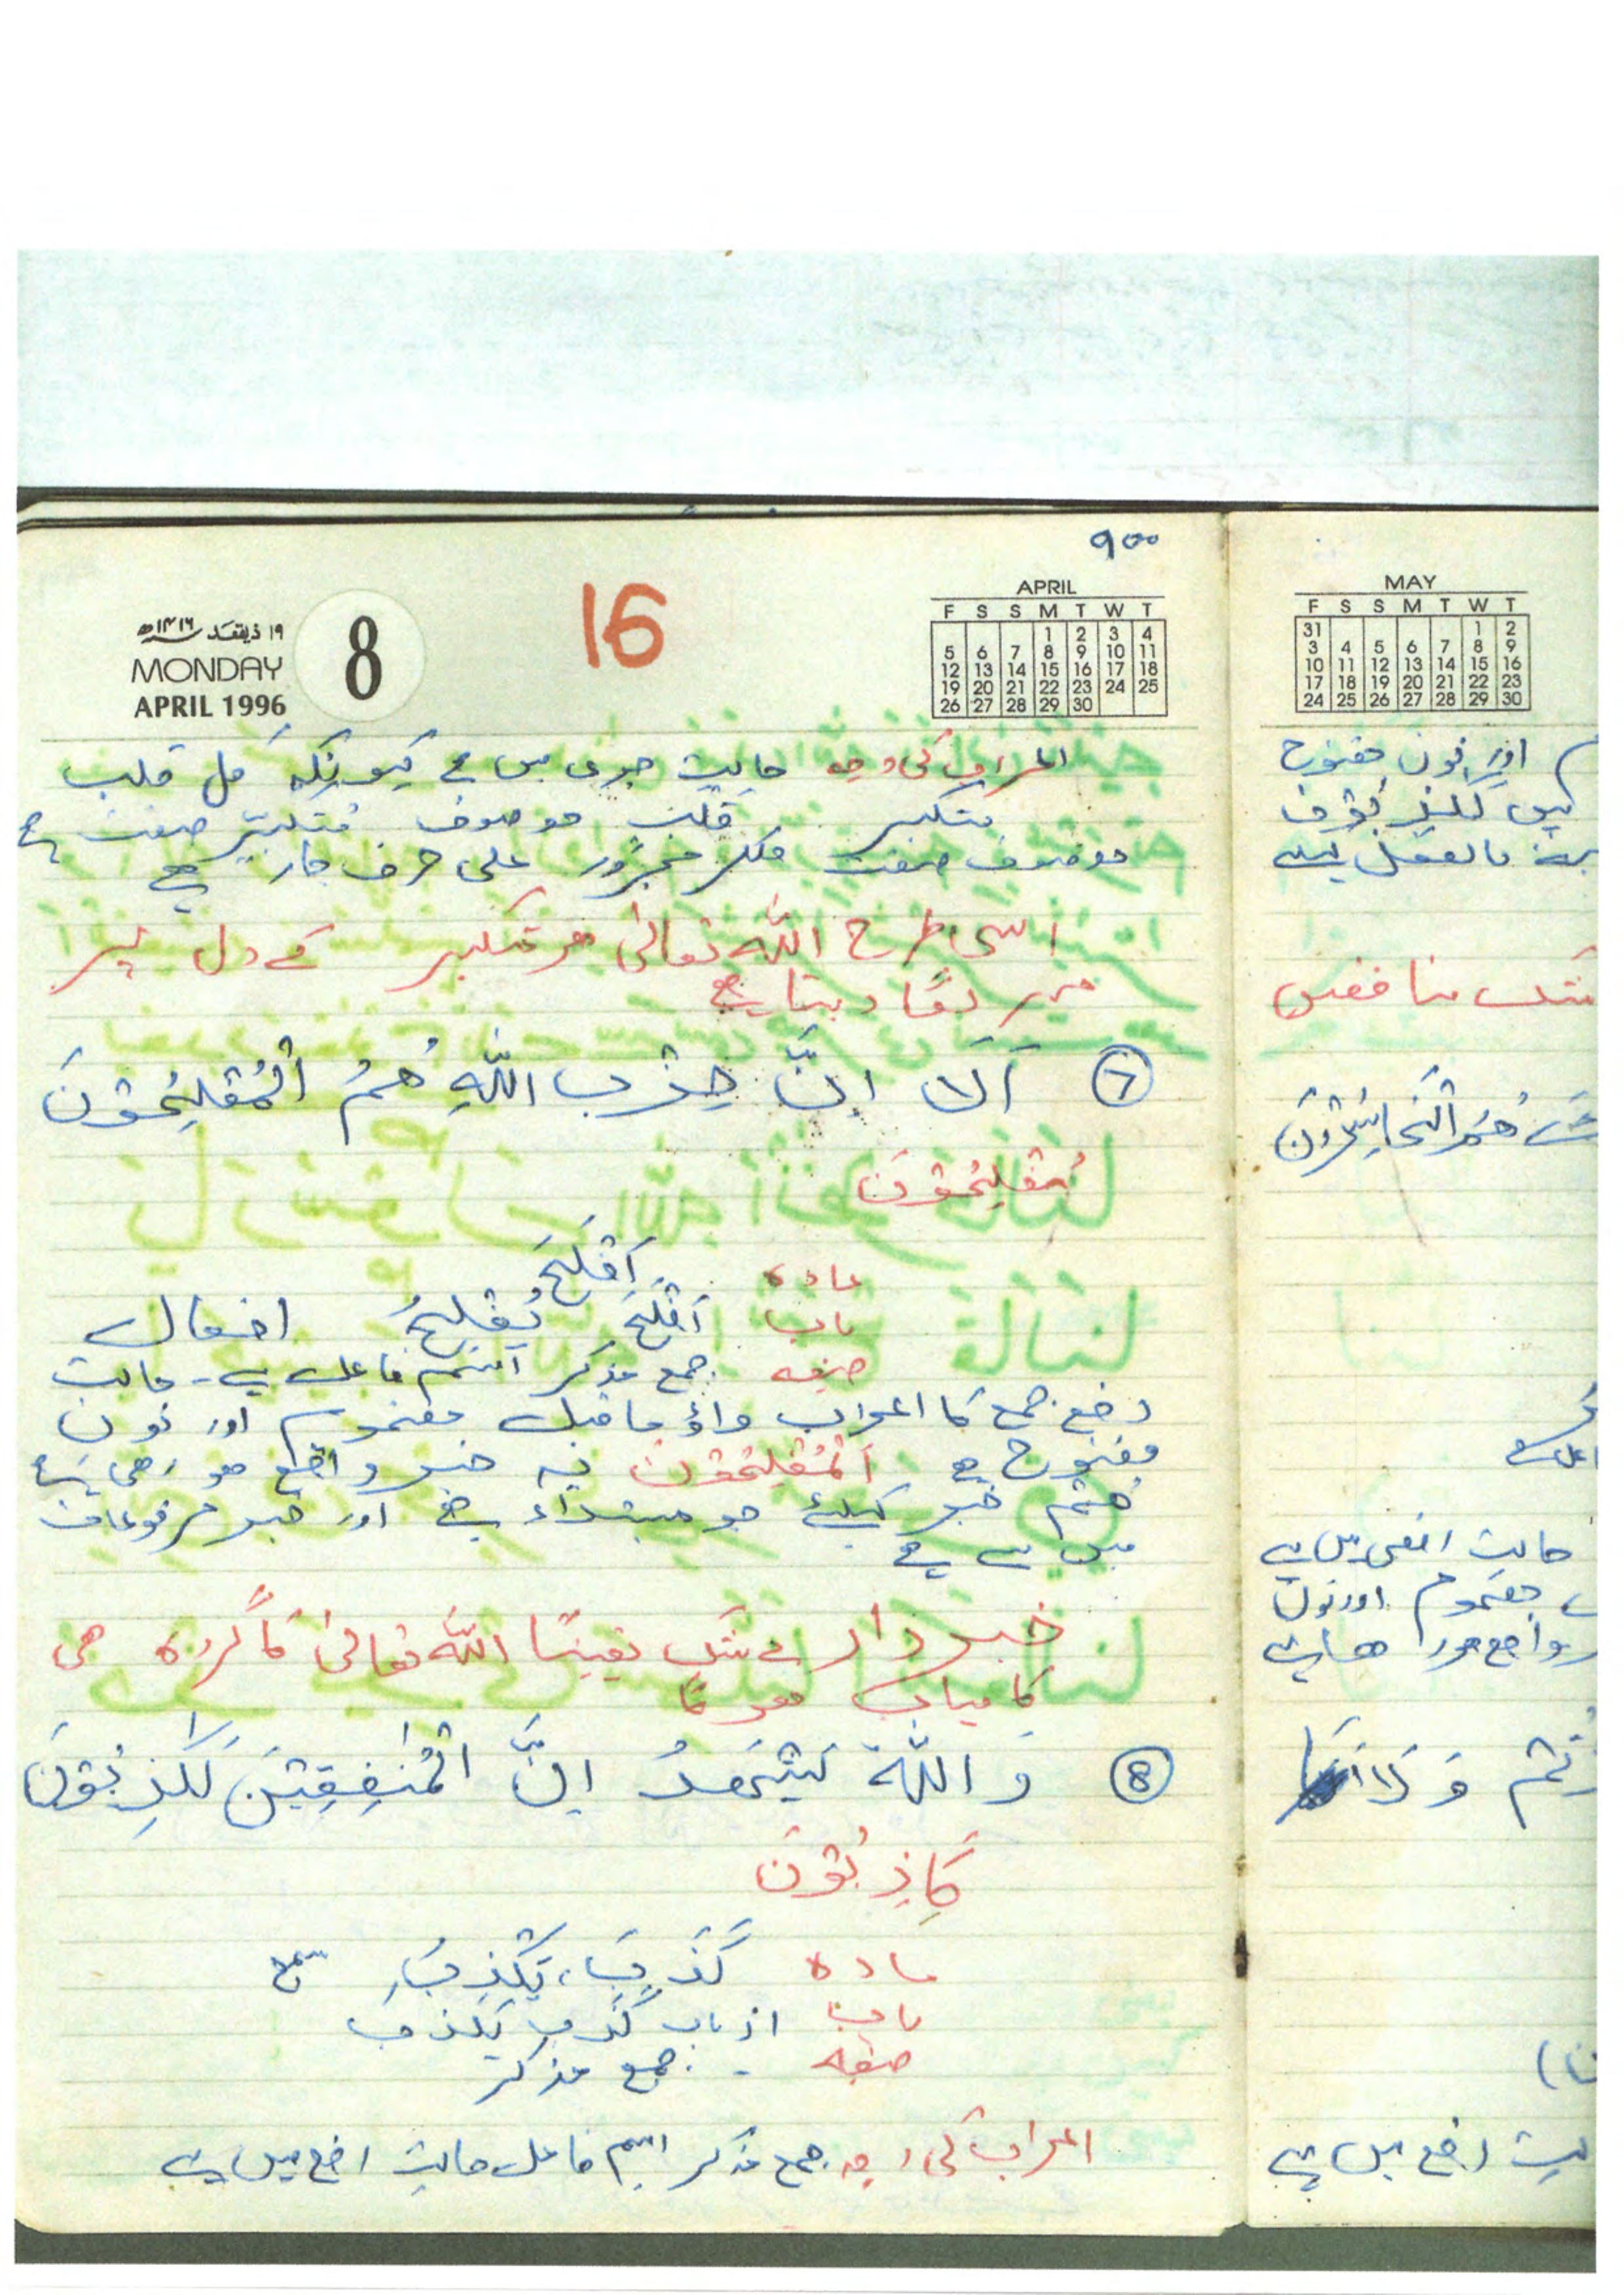 ٩٠٠
APRIL
F S S M T W T
1 2 3 4
5 6 7 8 9 10 11
12 13 14 15 16 17 18
19 20 21 22 23 24 25
26 27 28 29 30
16
8
١٩ ذيقعد ١٤١٦ھ
MONDAY
APRIL 1996
اعراب کی وجہ حالت جری میں ہے کیونکہ کل قلب
متکبر قلب موصوف متکبر صفت ہے
موصوف صفت ملکر مجرور علی حرف جار ہے
اسی طرح اللہ تعالیٰ ھر متکبر کے دل پر
مہر لگا دیتا ہے
⑦ اَلَا اِنَّ حِزْبَ اللّٰهِ هُمُ الْمُفْلِحُوْنَ
مُفْلِحُوْنَ
مادہ اَفْلَحَ
باب اَفْلَحَ يُفْلِحُ افعال
صیغہ جمع مذکر اسم فاعل ہے - حالت
رفع جمع کا اعراب واؤ ماقبل مضموم اور نون
مفتوح ہے اَلْمُفْلِحُوْنَ یہ خبر واقع ھو رھی ہے
ھُمْ خبر کیلئے جو مبتداء ہے اور خبر مرفوعات
میں سے ہے
خبردار بے شک یقینًا اللہ تعالیٰ کا گروہ ھی
کامیاب ھوگا
⑧ وَ اللّٰهُ يَشْهَدُ اِنَّ الْمُنٰفِقِيْنَ لَكٰذِبُوْنَ
كَاذِبُوْنَ
مادہ كَذَبَ، يَكْذِبُ
باب از باب كَذَبَ يَكْذِبُ
صیغہ - جمع مذکر
اعراب کی وجہ جمع مذکر اسم فاعل حالت رفع میں ہے
MAY
F S S M T W T
31 1 2
3 4 5 6 7 8 9
10 11 12 13 14 15 16
17 18 19 20 21 22 23
24 25 26 27 28 29 30
اور نون مفتوح
بالفعل
شک منافقین
هُمُ الْخَاسِرُوْنَ
حالت رفعی میں ہے
مضموم اور نون
واقع ھورا ھے
وَ لَا
حالت رفع میں ہے